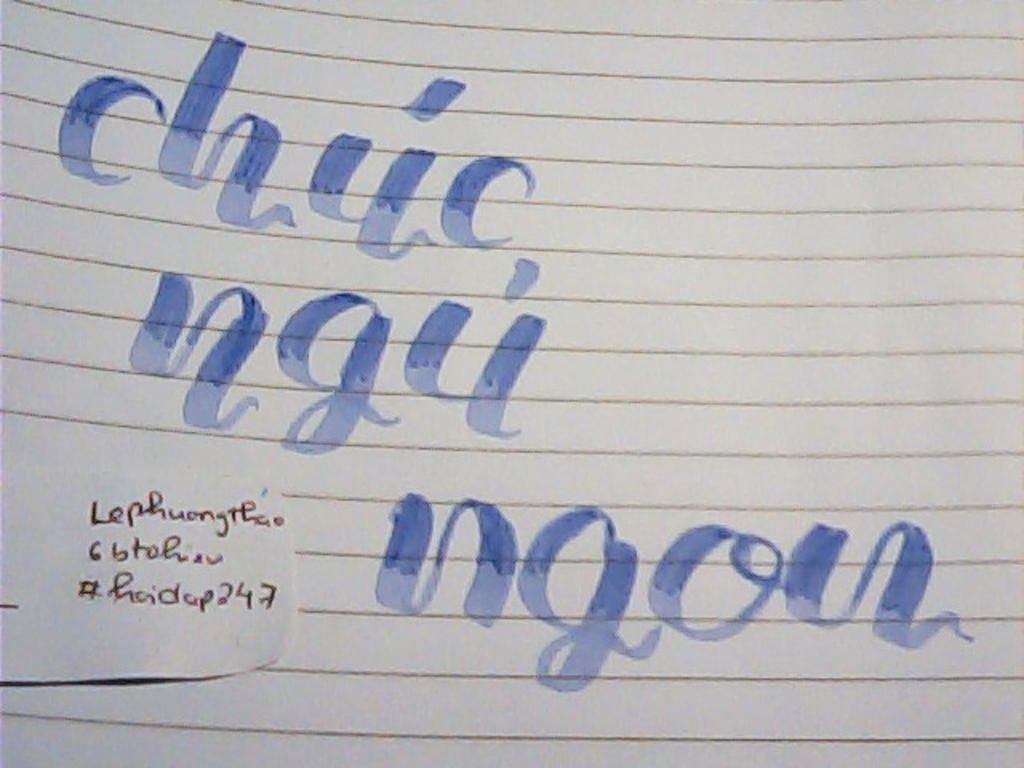 chúc
ngủ
ngon
Lephuongthảo
6btohiệu
#hoidap247